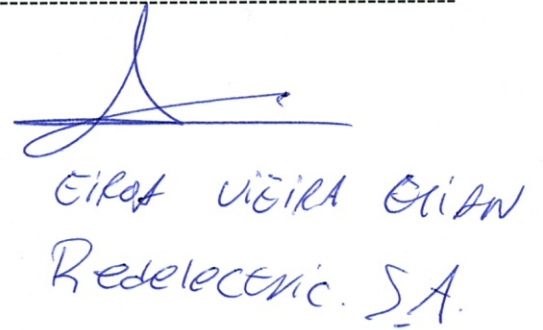 EIROA VIEIRA ELIAN
Redelectric. S.A.